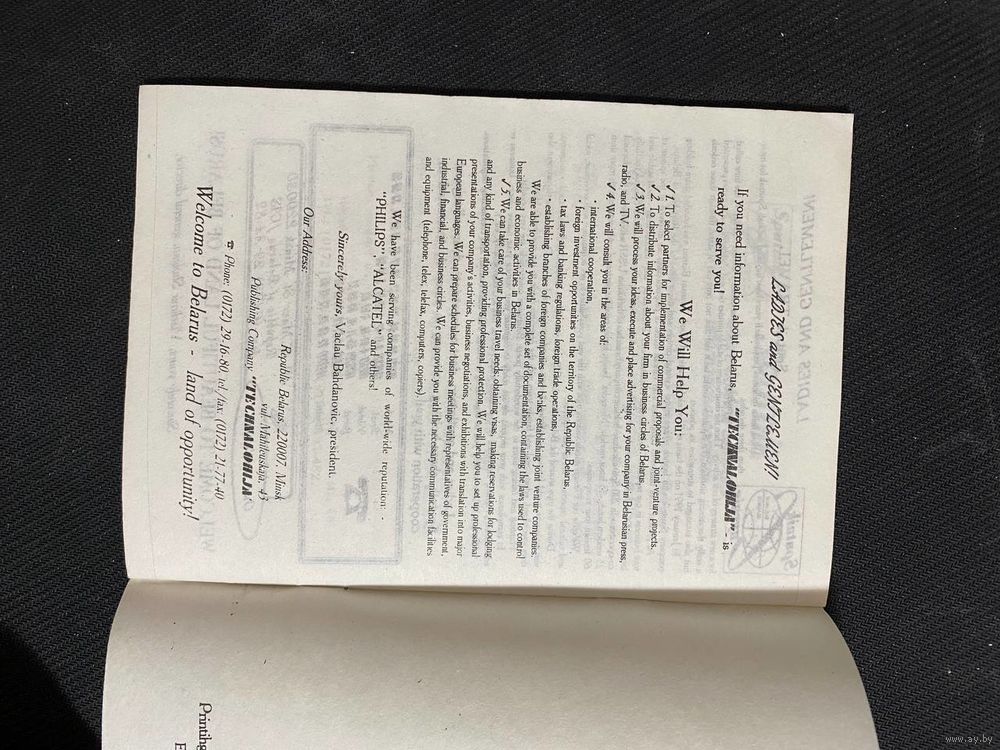 LADIES and GENTLEMEN!
If you need information about Belarus, "TECHVALOHIJA" - is
ready to serve you!
We Will Help You:
✓1. To select partners for implementation of commercial proposals and joint-venture projects.
✓2. To distribute information about your firm in business circles of Belarus.
✓3. We will process your ideas, execute and place advertising for your company in Belarusian press,
radio, and TV.
✓4. We will consult you in the areas of:
· international cooperation,
· foreign investment opportunities on the territory of the Republic Belarus,
· tax laws and banking regulations, foreign trade operations,
· establishing branches of foreign companies and banks, establishing joint venture companies.
We are able to provide you with a complete set of documentation, containing the laws used to control
business and economic activities in Belarus.
✓5. We can take care of your business travel needs: obtaining visas, making reservations for lodging
and any kind of transportation, providing professional protection. We will help you to set up professional
presentations of your company's activities, business negotiations, and exhibitions with translation into major
European languages. We can prepare schedules for business meetings with representatives of government,
industrial, financial, and business circles. We can provide you with the necessary communication facilities
and equipment (telephone, telex, telefax, computers, copiers).
We have been serving companies of world-wide reputation:
"PHILIPS", "ALCATEL" and others!
Sincerely yours, Vaclau Bahdanovic, president.
Our Address:
Republic Belarus, 220007, Minsk
vul. Mahileuskaja, 43
Publishing Company "TECHVALOHIJA"
☎ Phone: (0172) 29-16-80, tel/fax: (0172) 21-77-40
Welcome to Belarus - land of opportunity!
Printing
www.ay.by